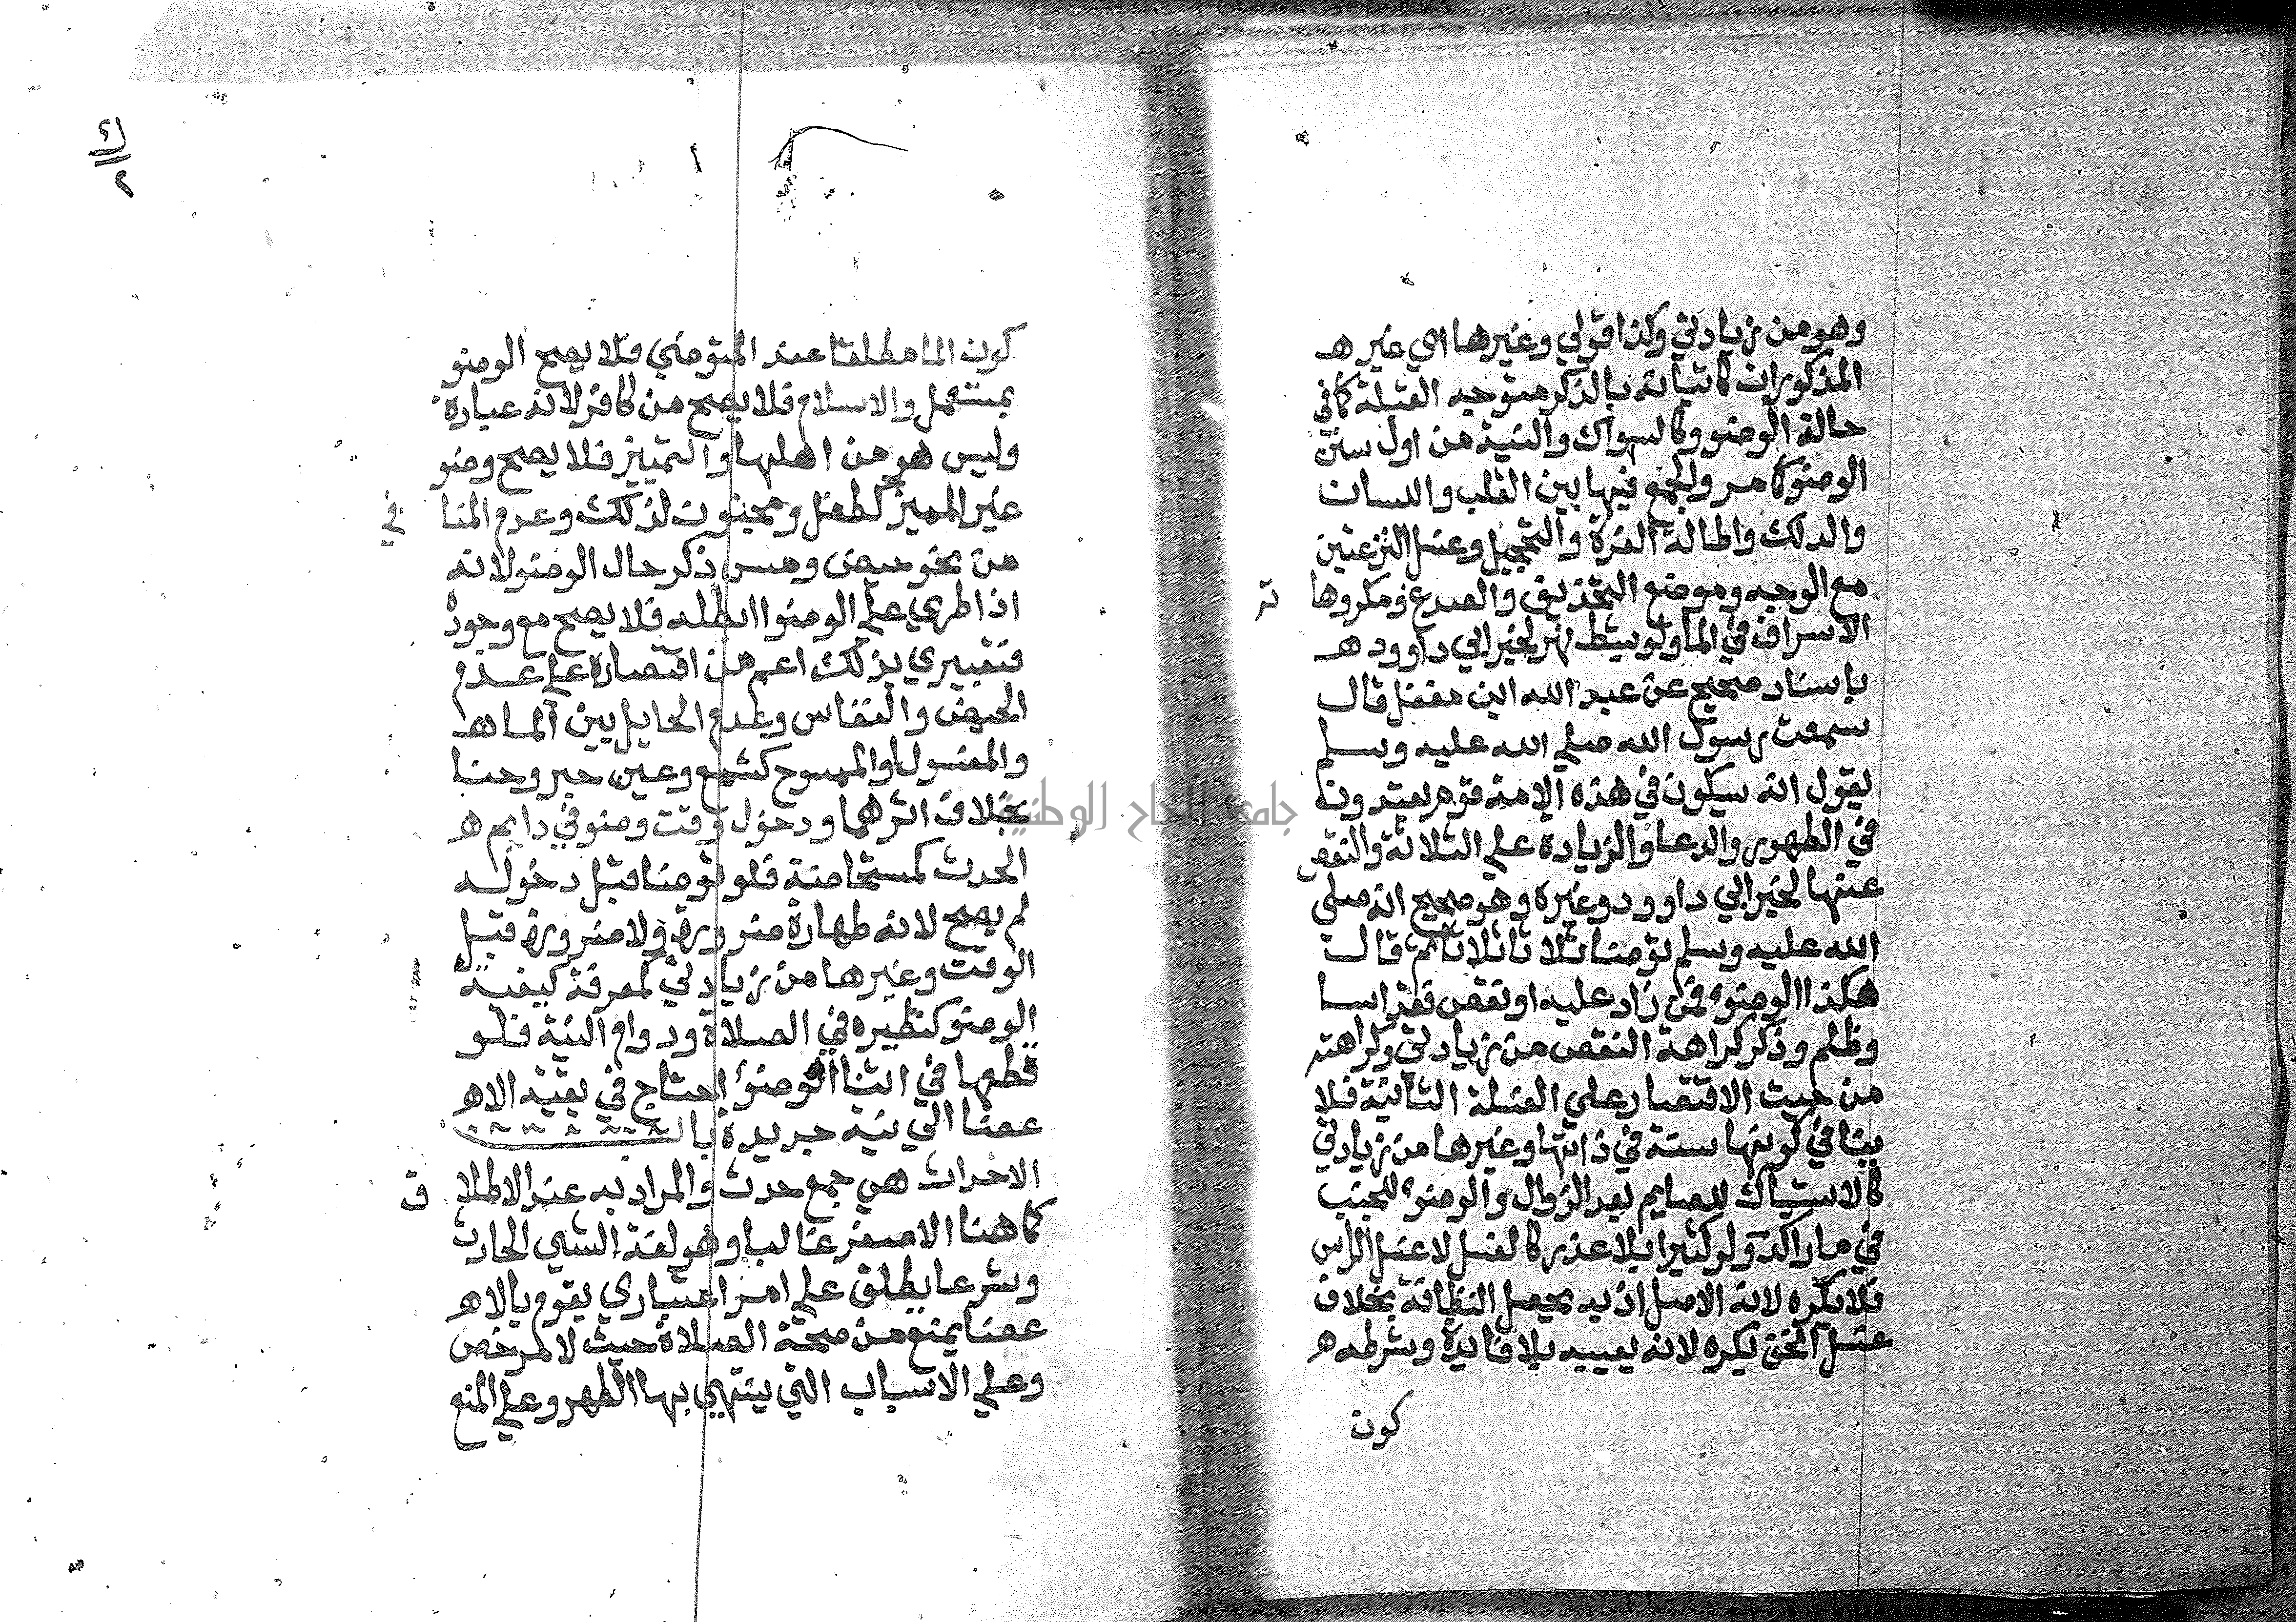 وهو من زيادتي وكذا قولي وغيرها اي غير هـ
المذكورات كاتيانه بالذكر متوجه القبلة كما في
حالة الوضو وكالسواك والنية من اول سنن
الوضو كما مر والجمع فيها بين القلب واللسان
والدلك واطالة الغرة والتحجيل وغسل النزعتين
مع الوجه وموضع التحذيف والصدغ ومكروها ته
الاسراف في الما ولو بشط نهر لخبر ابي داوود هـ
باسناد صحيح عن عبد الله ابن مغفل قال
سمعت رسول الله صلي الله عليه وسلم
يقول انه سيكون في هذه الامة قوم يعتدون
في الطهور والدعا والزيادة علي الثلاثة والنقص
عنها لخبر ابي داوود وغيره وهو صحيح انه صلى
الله عليه وسلم توضا ثلاثا ثلاثا ثم قال
هكذا الوضوء فمن زاد عليه او نقص فقد اسا
وظلم وذكر كراهة النقص من زيادتي وكراهته
من حيث الاقتصار علي الغسلة الثانية فلا
ينافي كونها سنة في ذاتها وغيرها من زيادتي
كالاستياك للصايم بعد الزوال والوضوء للجنب
في ما راكد ولو كثيرا بلا عذر كالغسل لا غسل الراس
فلا يكره لانه الاصل اذ به يحصل النظافة بخلاف
غسل الخف يكره لانه يعيبه بلا فايدة وشرطه هـ
كون
كون الما مطلقا عند المتوضي فلا يصح الوضو
بمستعمل والاسلام فلا يصح من كافر لانه عبادة
وليس هو من اهلها والتمييز فلا يصح وضو
غير المميز كطفل ومجنون لذلك وعدم المنا في
من نحو حيض ومس ذكر حال الوضو لانه
اذا طري علي الوضوا ابطله فلا يصح مع وجوده
فتعبيري بذلك اعم من اقتصاره علي عدم
الحيض والنفاس وعدم الحايل بين الما هـ
والمغسول او الممسوح كشمع وعين حبر وحنا
بخلاف اثرهما ودخول وقت وضو في دايم هـ
الحدث كمستحاضة فلو توضا قبل دخوله
لم يصح لانه طهارة ضرورة ولا ضرورة قبل
الوقت وغيرها من زيادتي كمعرفة كيفية
الوضو كنظيره في الصلاة ودوام النية فلو
قطعها في اثنا الوضوء احتاج في بقية الاهـ
عضا الي نية جديدة باب
الاحداث هي جمع حدث والمراد به عند الاطلا ق
كما هنا الاصغر غالبا وهو لغة الشي الحادث
وشرعا يطلق علي امر اعتباري يقوم بالاهـ
عضا يمنع من صحة الصلاة حيث لا مرخص
وعلي الاسباب التي ينتهي بها الطهر وعلي المنع
جامعة النجاح الوطنية